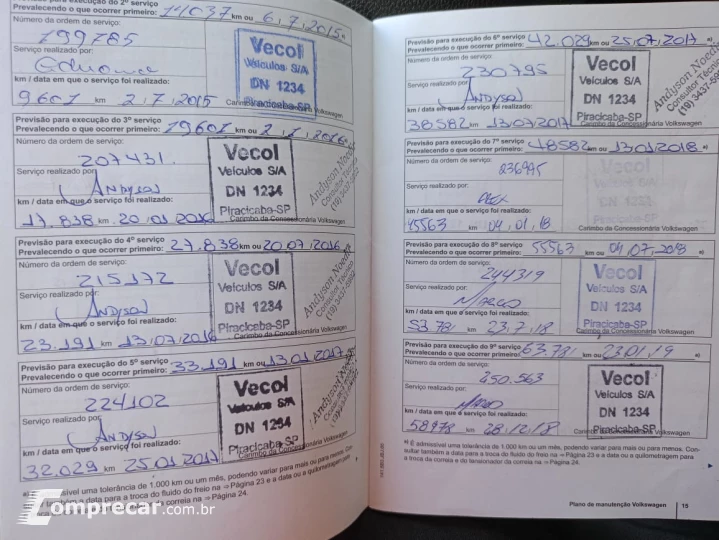 Previsão para execução do 2º serviço
Prevalecendo o que ocorrer primeiro: 11037 km ou 6,7,2015 a)
Número da ordem de serviço:
199785
Serviço realizado por:
km / data em que o serviço foi realizado:
9601 km 2,7,2015
Vecol
Veículos S/A
DN 1234
Piracicaba-SP
Carimbo da Concessionária Volkswagen
Previsão para execução do 3º serviço
Prevalecendo o que ocorrer primeiro: 19601 km ou 2,1,2016 a)
Número da ordem de serviço:
207431
Serviço realizado por:
Andyson
km / data em que o serviço foi realizado:
17.838 km 20,01,2016
Vecol
Veículos S/A
DN 1234
Piracicaba-SP
Carimbo da Concessionária Volkswagen
Previsão para execução do 4º serviço
Prevalecendo o que ocorrer primeiro: 27.838 km ou 20,07,2016
Número da ordem de serviço:
215172
Serviço realizado por:
Andyson
km / data em que o serviço foi realizado:
23.191 km 13,07,2016
Vecol
Veículos S/A
DN 1234
Piracicaba-SP
Carimbo da Concessionária Volkswagen
Previsão para execução do 5º serviço
Prevalecendo o que ocorrer primeiro: 33.191 km ou 13,01,2017 a)
Número da ordem de serviço:
224102
Serviço realizado por:
Andyson
km / data em que o serviço foi realizado:
32.029 km 25,01,2017
Vecol
Veículos S/A
DN 1234
Piracicaba-SP
Carimbo da Concessionária Volkswagen
a) É admissível uma tolerância de 1.000 km ou um mês, podendo variar para mais ou para menos.
também a data para a troca do fluido do freio na ⇒ Página 23 e a data ou a quilometragem para
e do tensionador da correia na ⇒ Página 24.
Previsão para execução do 6º serviço
Prevalecendo o que ocorrer primeiro: 42.029 km ou 25,07,2017 a)
Número da ordem de serviço:
230795
Serviço realizado por:
Andyson
km / data em que o serviço foi realizado:
38582 km 13,07,2017
Vecol
Veículos S/A
DN 1234
Piracicaba-SP
Carimbo da Concessionária Volkswagen
Andyson
Consultor Técnico
Previsão para execução do 7º serviço
Prevalecendo o que ocorrer primeiro: 48582 km ou 13,01,2018 a)
Número da ordem de serviço:
236995
Serviço realizado por:
Alex
km / data em que o serviço foi realizado:
45563 km 04,01,18
Vecol
Veículos S/A
DN 1234
Piracicaba-SP
Carimbo da Concessionária Volkswagen
Previsão para execução do 8º serviço
Prevalecendo o que ocorrer primeiro: 55563 km ou 04,07,2018 a)
Número da ordem de serviço:
244319
Serviço realizado por:
Marco
km / data em que o serviço foi realizado:
53.781 km 23,7,18
Vecol
Veículos S/A
DN 1234
Piracicaba-SP
Carimbo da Concessionária Volkswagen
Previsão para execução do 9º serviço
Prevalecendo o que ocorrer primeiro: 63.781 km ou 23,01,19 a)
Número da ordem de serviço:
250.563
Serviço realizado por:
km / data em que o serviço foi realizado:
58978 km 28,12,18
Vecol
Veículos S/A
DN 1234
Piracicaba-SP
Carimbo da Concessionária Volkswagen
a) É admissível uma tolerância de 1.000 km ou um mês, podendo variar para mais ou para menos. Con-
sultar também a data para a troca do fluido do freio na ⇒ Página 23 e a data ou a quilometragem para
a troca da correia e do tensionador da correia na ⇒ Página 24.
Plano de manutenção Volkswagen 15
Comprecar.com.br